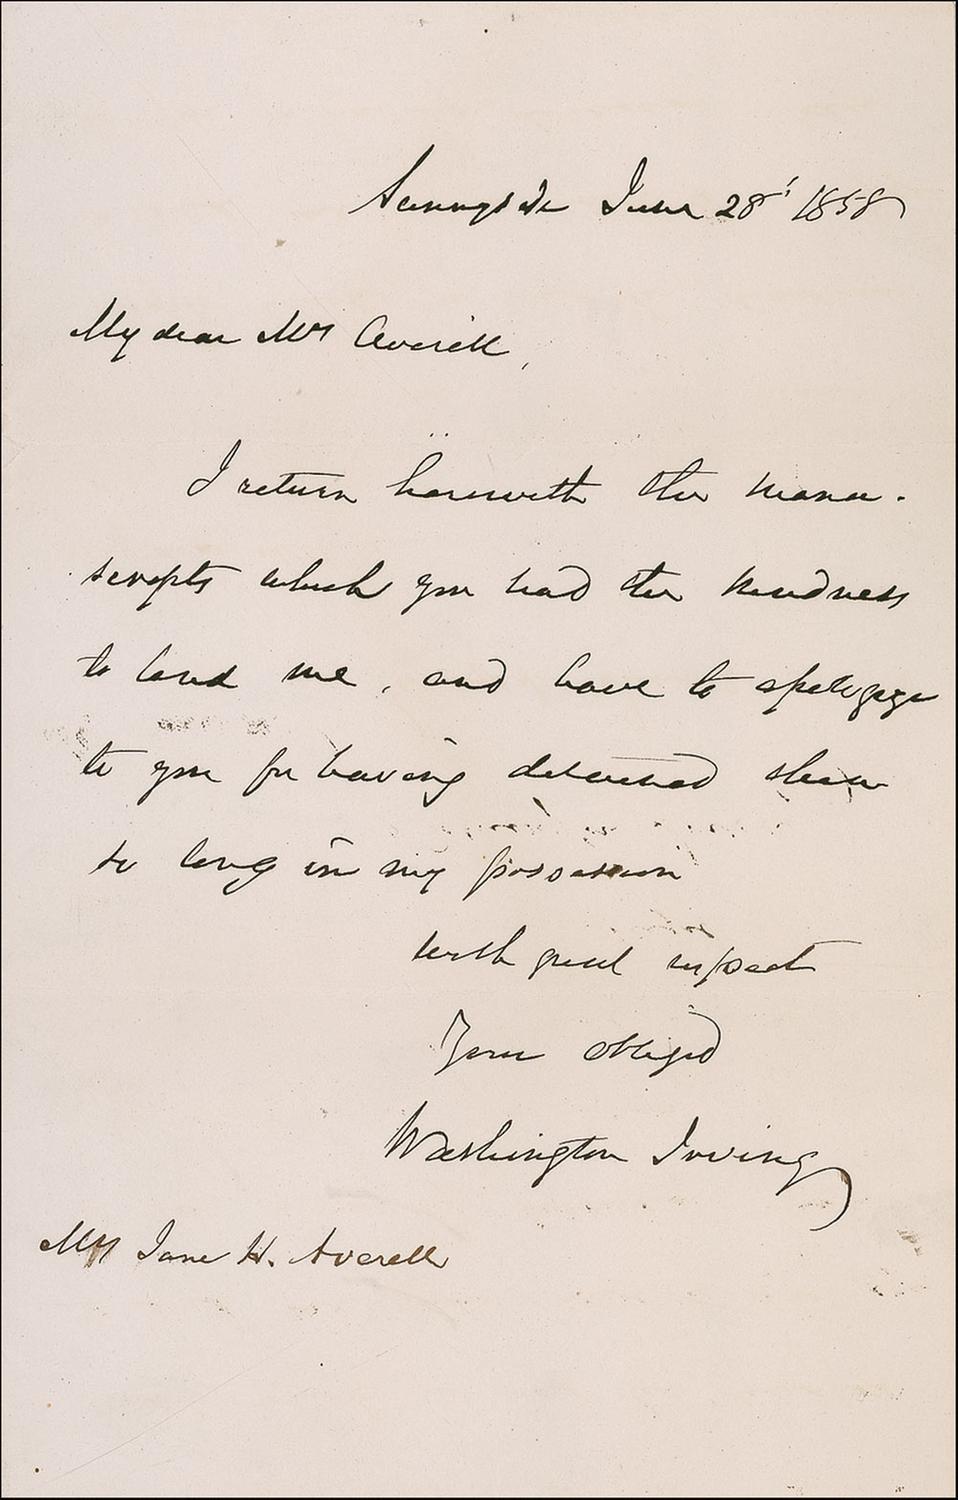 Sunnyside June 28' 1858
My dear Mrs Averell,
I return herewith the manu-
scripts which you had the kindness
to lend me, and have to apologize
to you for having detained them
so long in my possession
With great respect
Your obliged
Washington Irving
Mrs Jane H. Averell